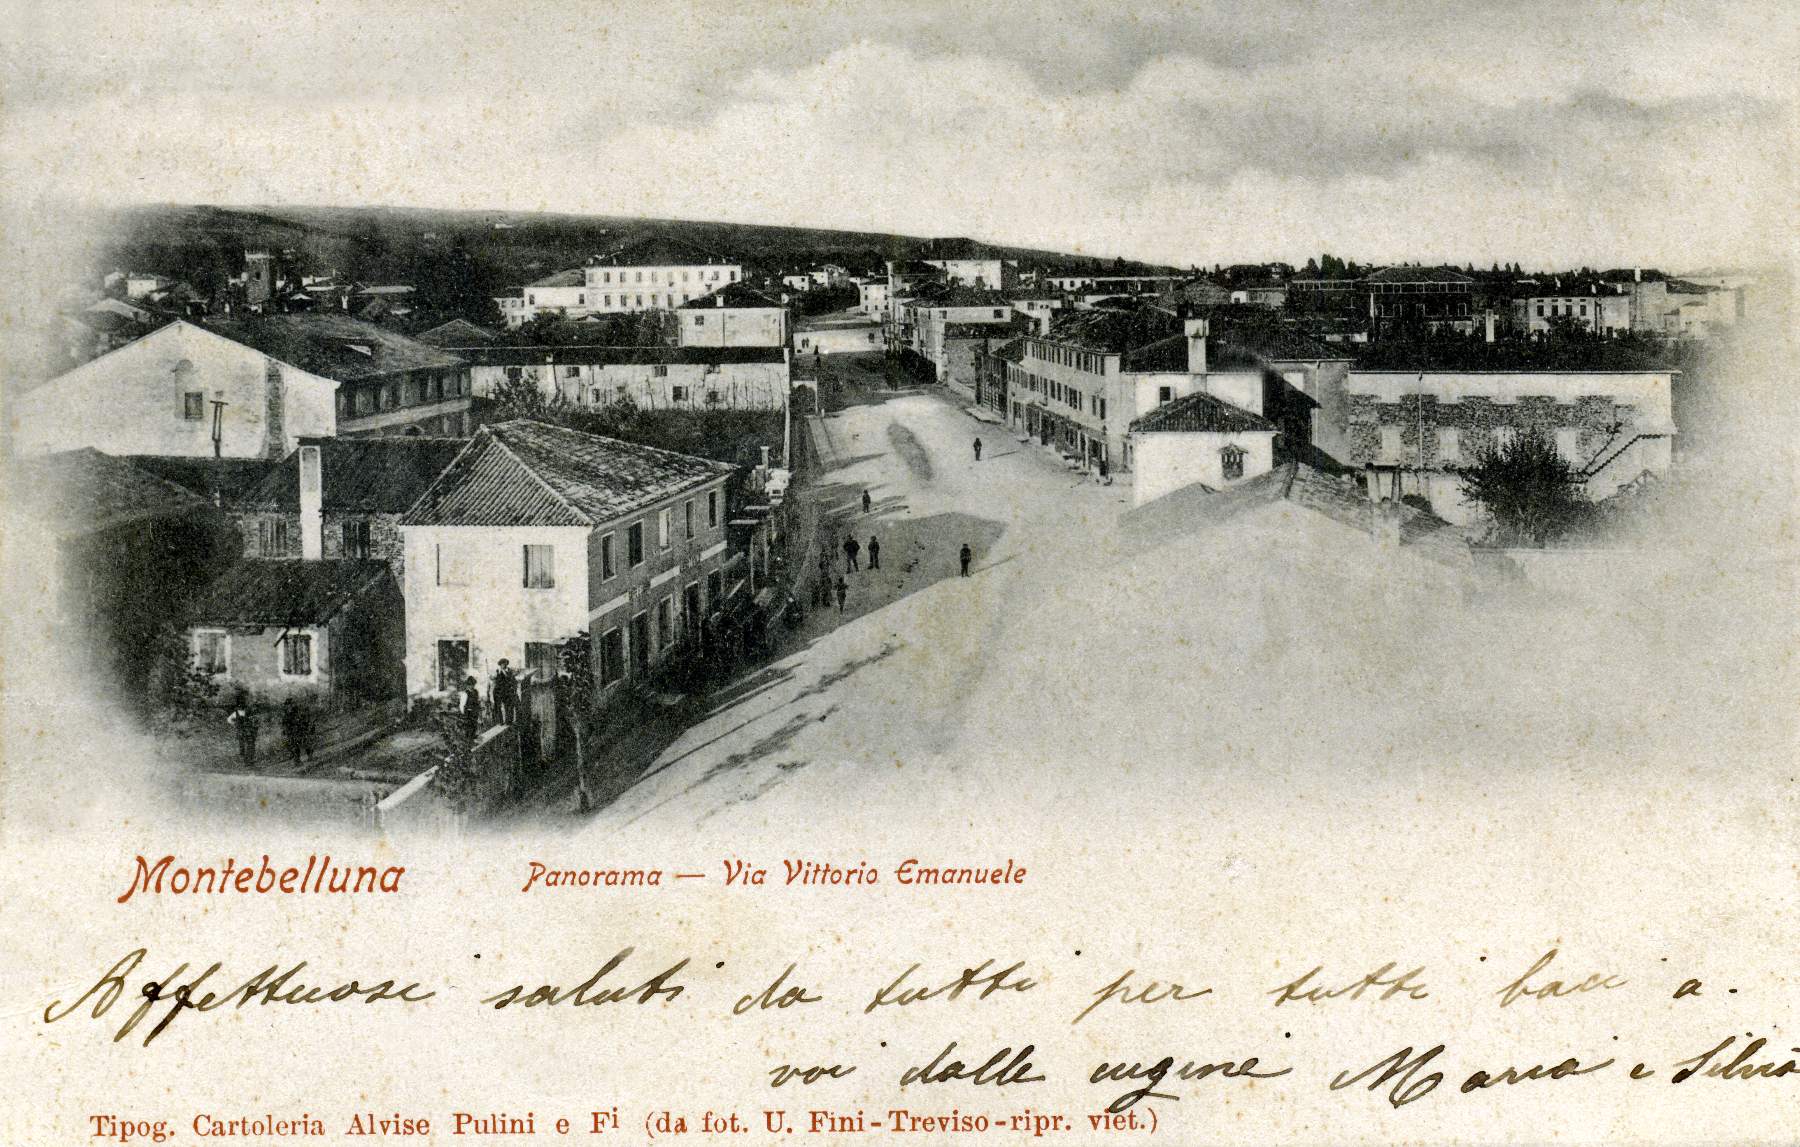 Montebelluna Panorama — Via Vittorio Emanuele
Affettuosi saluti da tutti per tutti baci a.
voi dalle cugine Maria e Silvia
Tipog. Cartoleria Alvise Pulini e Fi (da fot. U. Fini-Treviso-ripr. viet.)